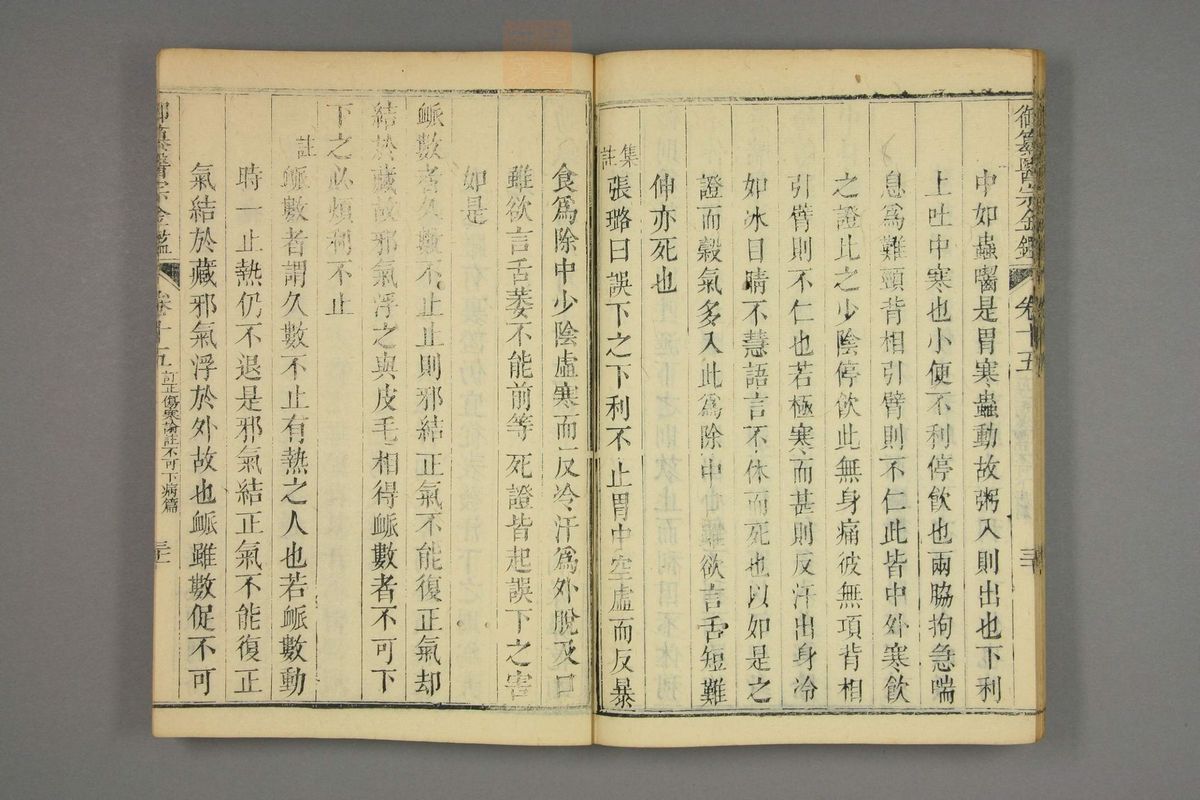 御纂醫宗金鑑 卷十五 三十
中如蟲嚙是胃寒蟲動故粥入則出也下利
上吐中寒也小便不利停飲也兩脇拘急喘
息爲難頸背相引臂則不仁此皆中外寒飲
之證比之少陰停飲此無身痛彼無項背相
引臂則不仁也若極寒而甚則反汗出身冷
如冰目睛不慧語言不休而死也以如是之
證而穀氣多入此爲除中心雖欲言舌短難
伸亦死也
集註張璐曰誤下之下利不止胃中空虛而反暴
食爲除中少陰虛寒而反冷汗爲外脫及口
雖欲言舌萎不能前等死證皆起誤下之害
如是
衇數者久數不止止則邪結正氣不能復正氣却
結於藏故邪氣浮之與皮毛相得衇數者不可下
下之必煩利不止
註衇數者謂久數不止有熱之人也若衇數動
時一止熱仍不退是邪氣結正氣不能復正
氣結於藏邪氣浮於外故也衇雖數促不可
御纂醫宗金鑑 卷十五 訂正傷寒論註不可下病篇